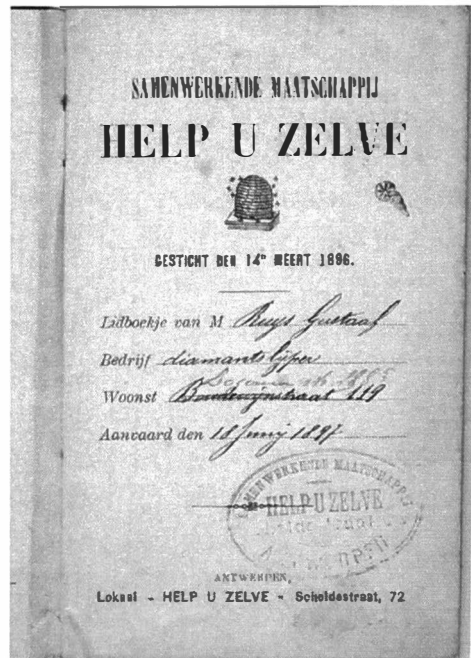 SAMENWERKENDE MAATSCHAPPIJ
HELP U ZELVE
GESTICHT DEN 14n MEERT 1896.
Lidboekje van M Ruys Gustaaf
Bedrijf diamantslijper
Woonst Boudewijnstraat 119
Aanvaard den 18 Junij 1897
SAMENWERKENDE MAATSCHAPPIJ
HELP U ZELVE
ANTWERPEN
ANTWERPEN,
Lokaal - HELP U ZELVE - Scheldestraat, 72